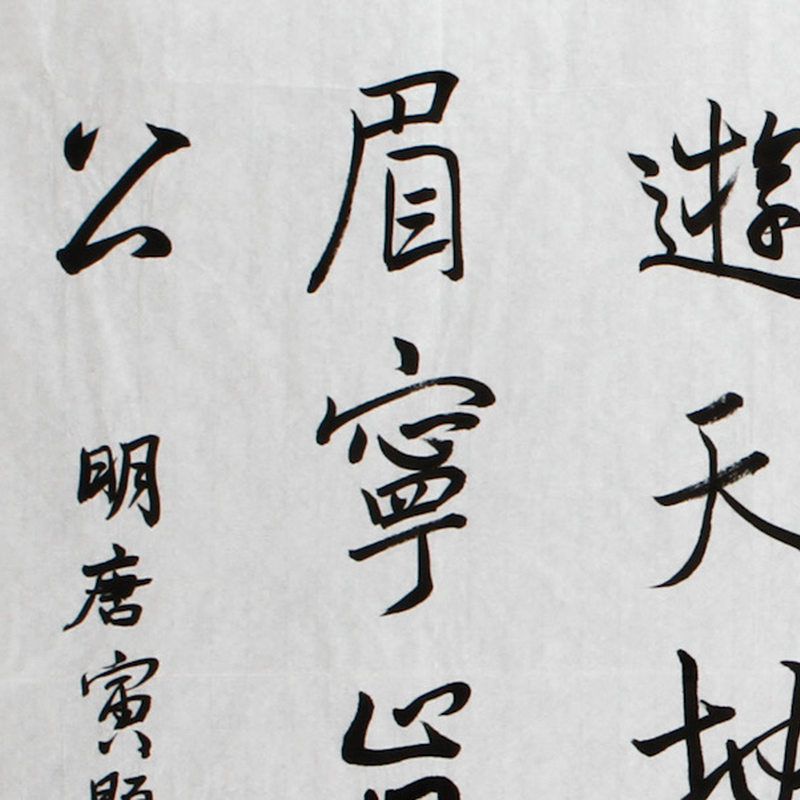 遊天地
眉寧
公
明唐寅